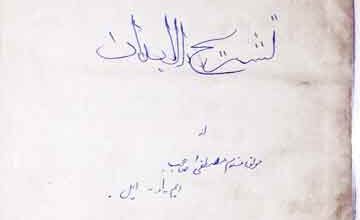 تشریح الابدان
از
مولوی غلام مصطفیٰ صاحب
ایم - او - ایل -